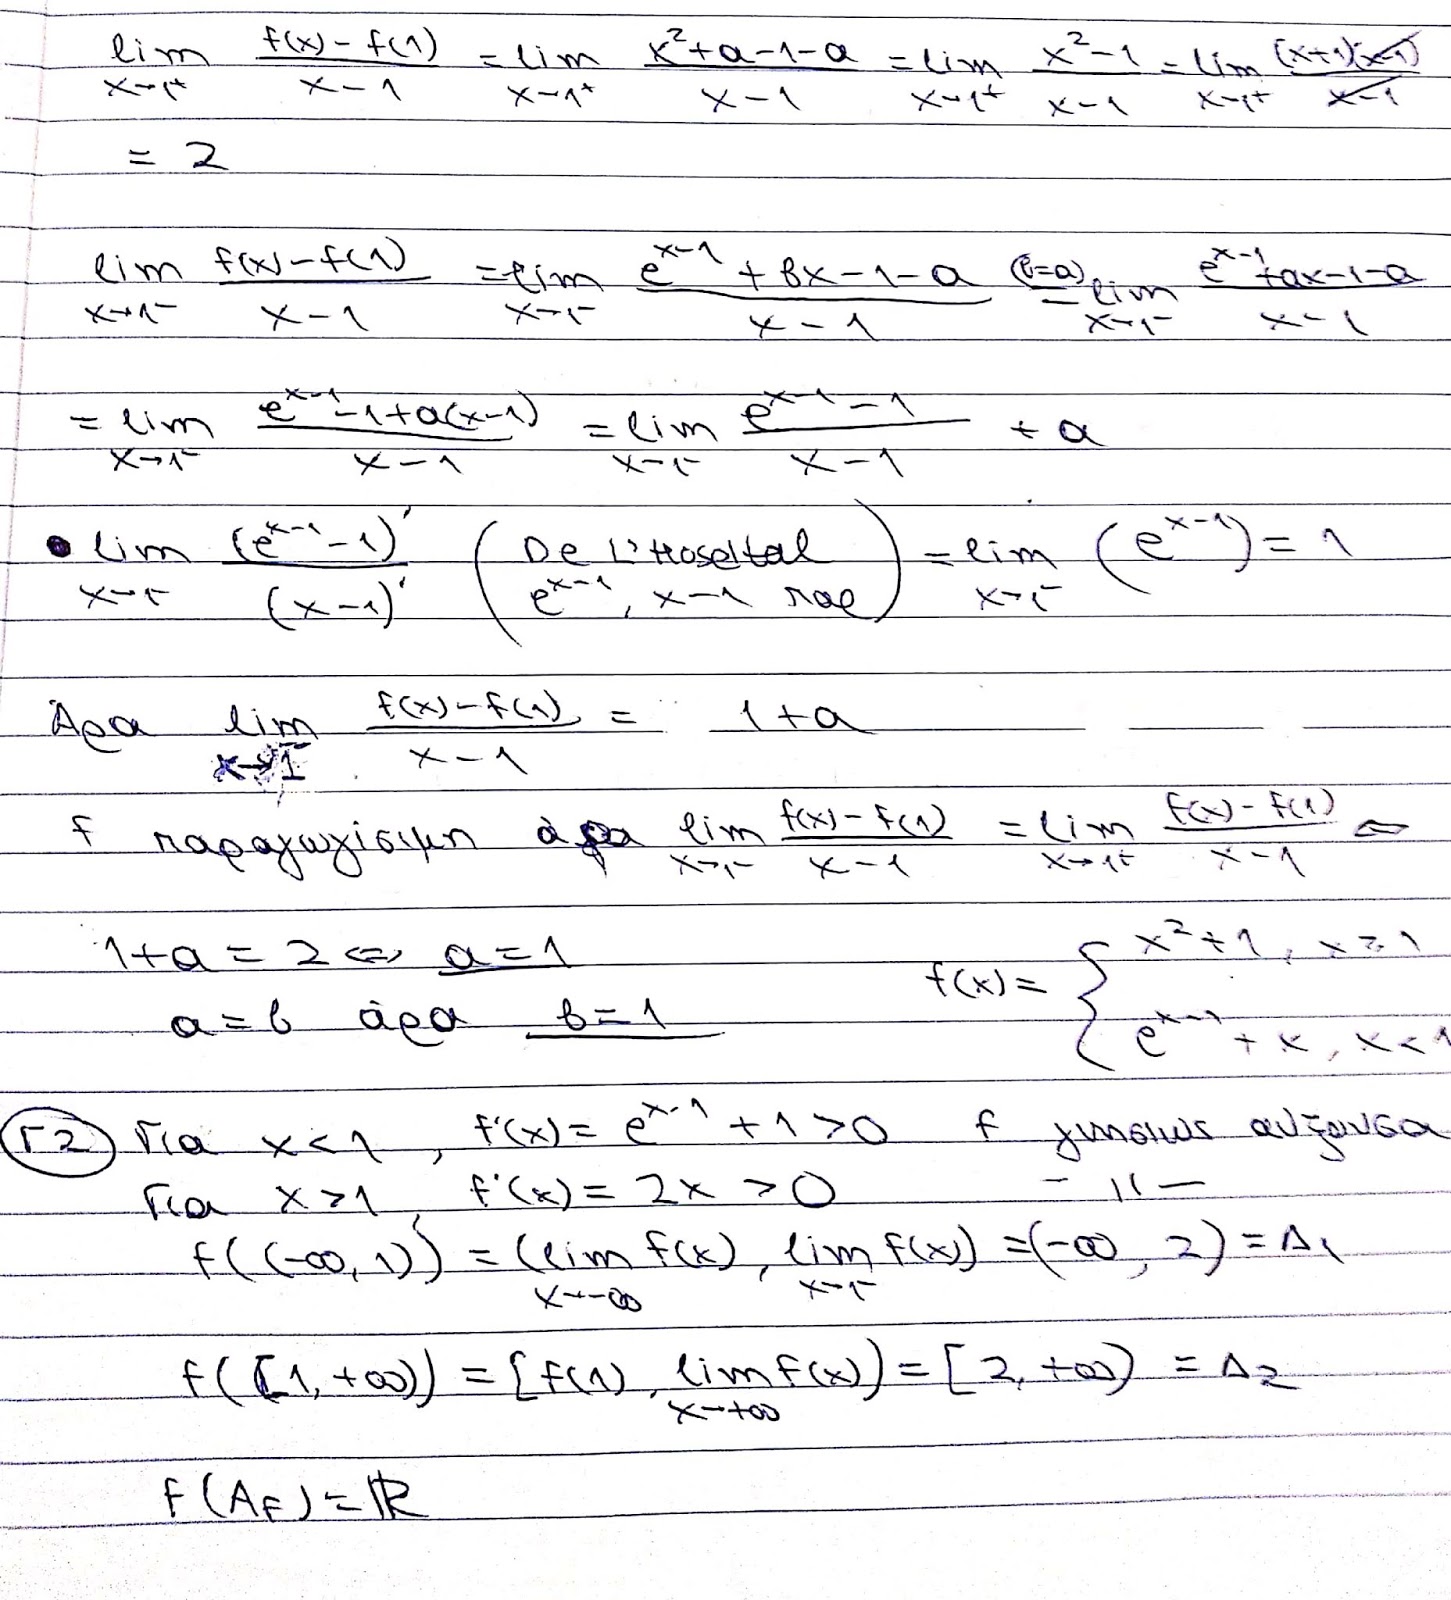 lim x→1⁺ (f(x)-f(1))/(x-1) = lim x→1⁺ (x²+α-1-α)/(x-1) = lim x→1⁺ (x²-1)/(x-1) = lim x→1⁺ (x+1)(x-1)/(x-1)
= 2
lim x→1⁻ (f(x)-f(1))/(x-1) = lim x→1⁻ (e^(x-1)+βx-1-α)/(x-1) (β=α)= lim x→1⁻ (e^(x-1)+αx-1-α)/(x-1)
= lim x→1⁻ (e^(x-1)-1+α(x-1))/(x-1) = lim x→1⁻ (e^(x-1)-1)/(x-1) + α
• lim x→1⁻ (e^(x-1)-1)'/(x-1)' (De L'Hospital e^(x-1), x-1 παρ) = lim x→1⁻ (e^(x-1)) = 1
Άρα lim x→1⁻ (f(x)-f(1))/(x-1) = 1+α
f παραγωγίσιμη άρα lim x→1⁻ (f(x)-f(1))/(x-1) = lim x→1⁺ (f(x)-f(1))/(x-1) ⇔
1+α=2 ⇔ α=1
α=β άρα β=1
f(x)= { x²+1, x≥1
e^(x-1)+x, x<1
Γ2 Για x<1, f'(x)= e^(x-1)+1>0 f γνησίως αύξουσα
Για x>1, f'(x)= 2x >0 -〃-
f((-∞,1)) = (lim x→-∞ f(x), lim x→1⁻ f(x)) =(-∞, 2) = Δ1
f([1,+∞)) = [f(1), lim x→+∞ f(x)) = [2,+∞) = Δ2
f(Af)=ℝ